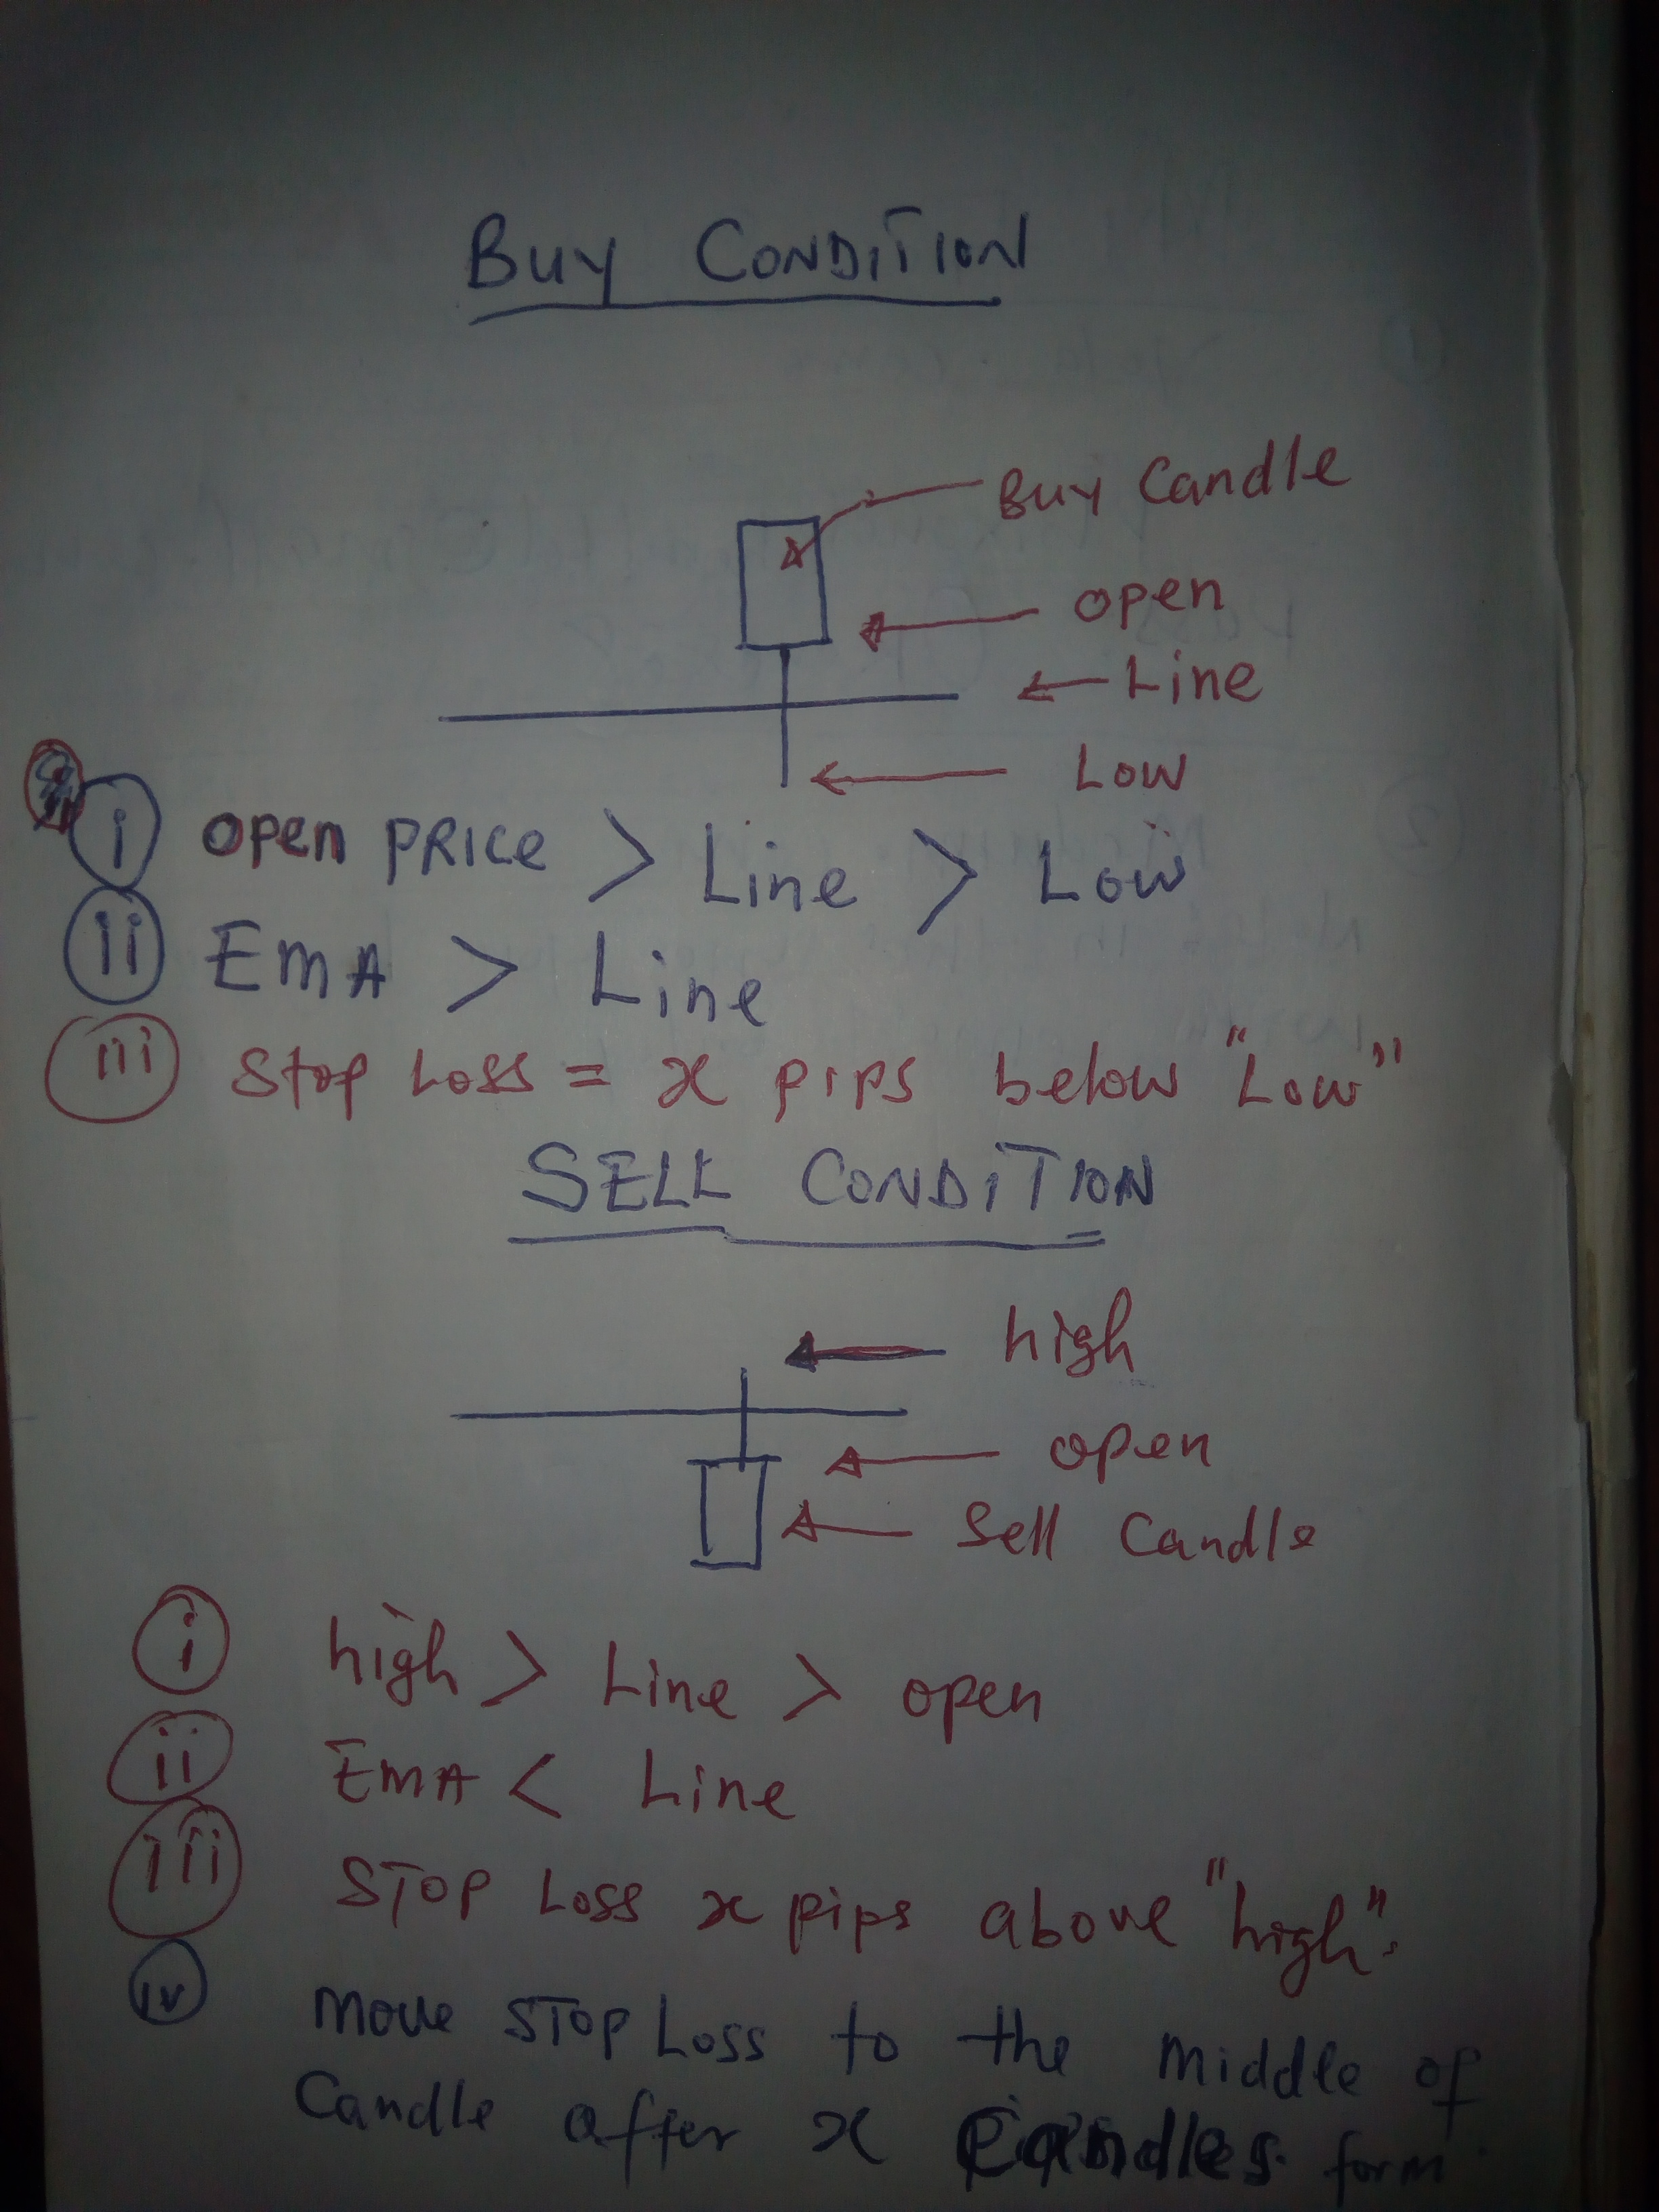 BUY CONDITION
BUY Candle
open
Line
Low
i open PRICE > Line > Low
ii EMA > Line
iii Stop Loss = x pips below "Low"
SELL CONDITION
high
open
Sell Candle
i high > Line > open
ii EMA < Line
iii STOP Loss x pips above "high".
iv move STOP Loss to the middle of
Candle after x Candles form